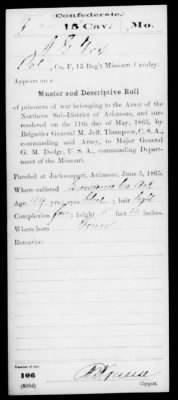 Confederate.
15 Cav. Mo.
Pvt., Co. F, 15 Reg't Missouri Cavalry.
Appears on a
Muster and Descriptive Roll
of prisoners of war belonging to the Army of the
Northern Sub-District of Arkansas, and sur-
rendered on the 11th day of May, 1865, by
Brigadier General M. Jeff. Thompson, C. S. A.,
commanding said Army, to Major General
G. M. Dodge, C. S. A., commanding Depart-
ment of the Missouri.
Paroled at Jacksonport, Arkansas, June 5, 1865.
Where enlisted Lawrence Co Ark
Age, yrs; eyes Blue; hair light
Complexion fair; height feet inches.
Where born Tenn
Remarks:
Number of roll:
106
(639d) Copyist.